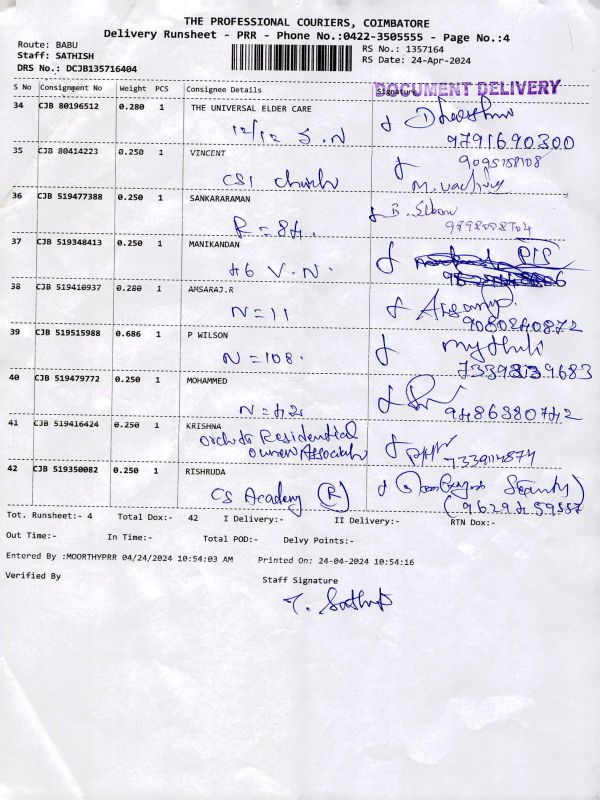 THE PROFESSIONAL COURIERS, COIMBATORE
Delivery Runsheet - PRR - Phone No.:0422-3505555 - Page No.:4
Route: BABU
Staff: SATHISH
DRS No.: DCJB135716404
RS No.: 1357164
RS Date: 24-Apr-2024
DOCUMENT DELIVERY
S No Consignment No Weight PCS Consignee Details Signature
34 CJB 80196512 0.280 1 THE UNIVERSAL ELDER CARE
12/12 S.N
9791690300
35 CJB 80414223 0.250 1 VINCENT
CSI church
36 CJB 519477388 0.250 1 SANKARARAMAN
R = 84.
37 CJB 519348413 0.250 1 MANIKANDAN
46 V.N.
38 CJB 519410937 0.280 1 AMSARAJ.R
N = 11
9080240872
39 CJB 519515988 0.686 1 P WILSON
N = 108.
40 CJB 519479772 0.250 1 MOHAMMED
N = 42
9486380742
41 CJB 519416424 0.250 1 KRISHNA
Residential
owner
42 CJB 519350082 0.250 1 RISHRUDA
CS Academy (R)
Tot. Runsheet:- 4 Total Dox:- 42 I Delivery:- II Delivery:- RTN Dox:-
Out Time:- In Time:- Total POD:- Delvy Points:-
Entered By :MOORTHYPRR 04/24/2024 10:54:03 AM Printed On: 24-04-2024 10:54:16
Verified By Staff Signature